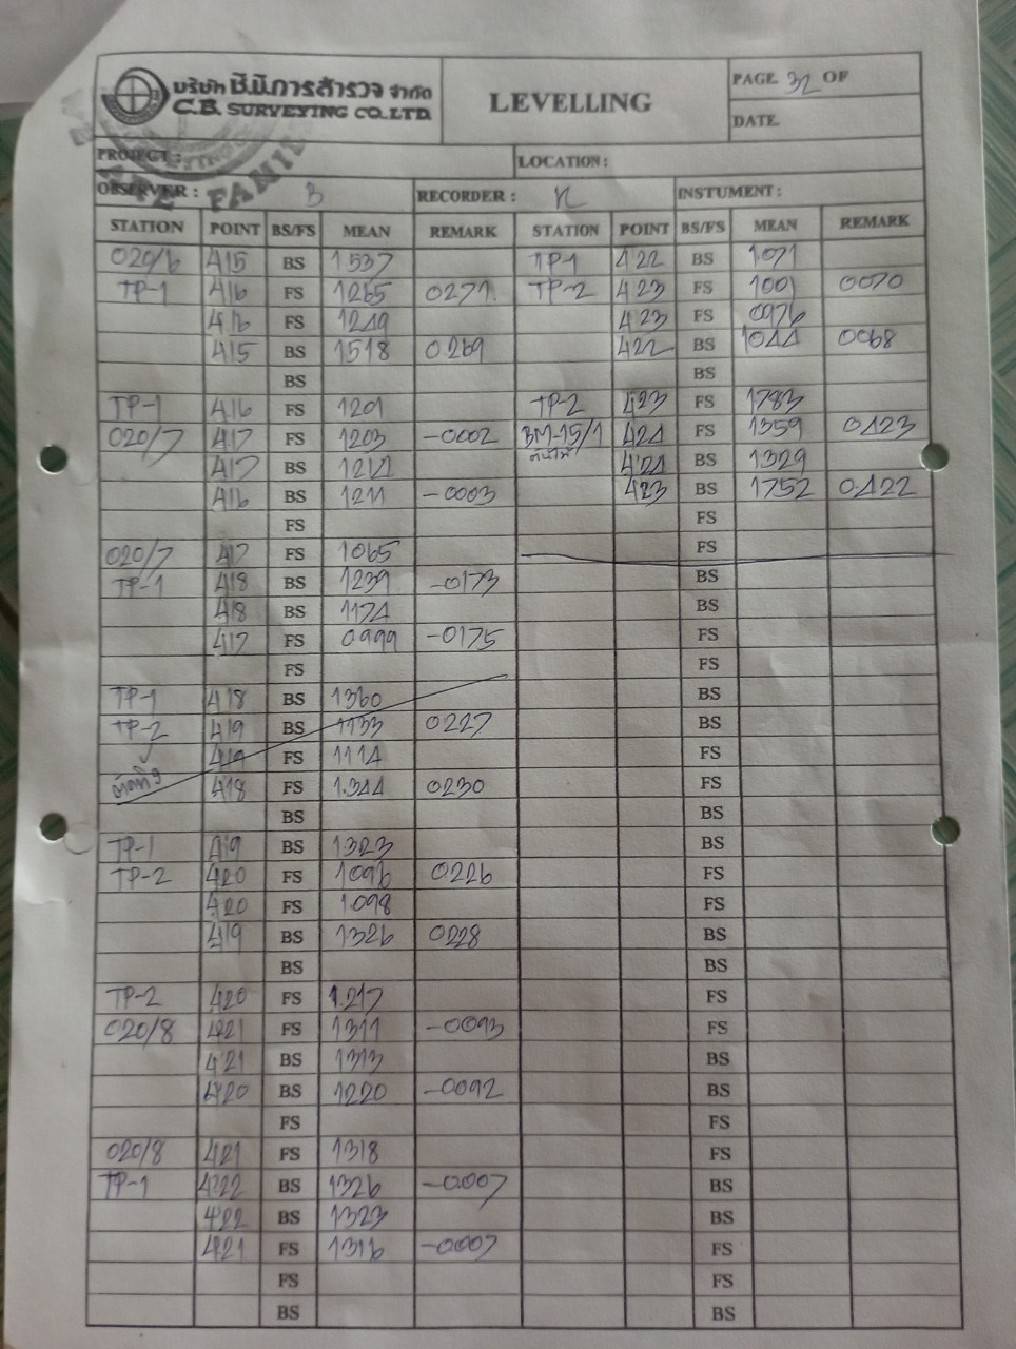 บริษัท ซี.บี.การสำรวจ จำกัด
C.B. SURVEYING CO.,LTD.
LEVELLING
PAGE 32 OF
DATE
PROJECT :
LOCATION :
OBSERVER : B
RECORDER : K
INSTUMENT :
STATION POINT BS/FS MEAN REMARK STATION POINT BS/FS MEAN REMARK
020/6 415 BS 1537 TP-1 422 BS 1.071
TP-1 416 FS 1265 0271 TP-2 423 FS 1001 0070
416 FS 1249 423 FS 0976
415 BS 1518 0269 422 BS 1044 0068
BS BS
TP-1 416 FS 1201 TP-2 423 FS 1783
020/7 417 FS 1203 -0002 BM-15/1 424 FS 1359 0423
417 BS 1214 424 BS 1329
416 BS 1211 -0003 423 BS 1752 0422
FS FS
020/7 417 FS 1065 FS
TP-1 418 BS 1239 -0173 BS
418 BS 1174 BS
417 FS 0999 -0175 FS
FS FS
TP-1 418 BS 1360 BS
TP-2 419 BS 1133 0227 BS
419 FS 1114 FS
418 FS 1.344 0230 FS
BS BS
TP-1 419 BS 1323 BS
TP-2 420 FS 1096 0226 FS
420 FS 1.098 FS
419 BS 1326 0228 BS
BS BS
TP-2 420 FS 1.217 FS
020/8 421 FS 1311 -0093 FS
421 BS 1313 BS
420 BS 1220 -0092 BS
FS FS
020/8 421 FS 1318 FS
TP-1 422 BS 1326 -0007 BS
422 BS 1323 BS
421 FS 1316 -0007 FS
FS FS
BS BS